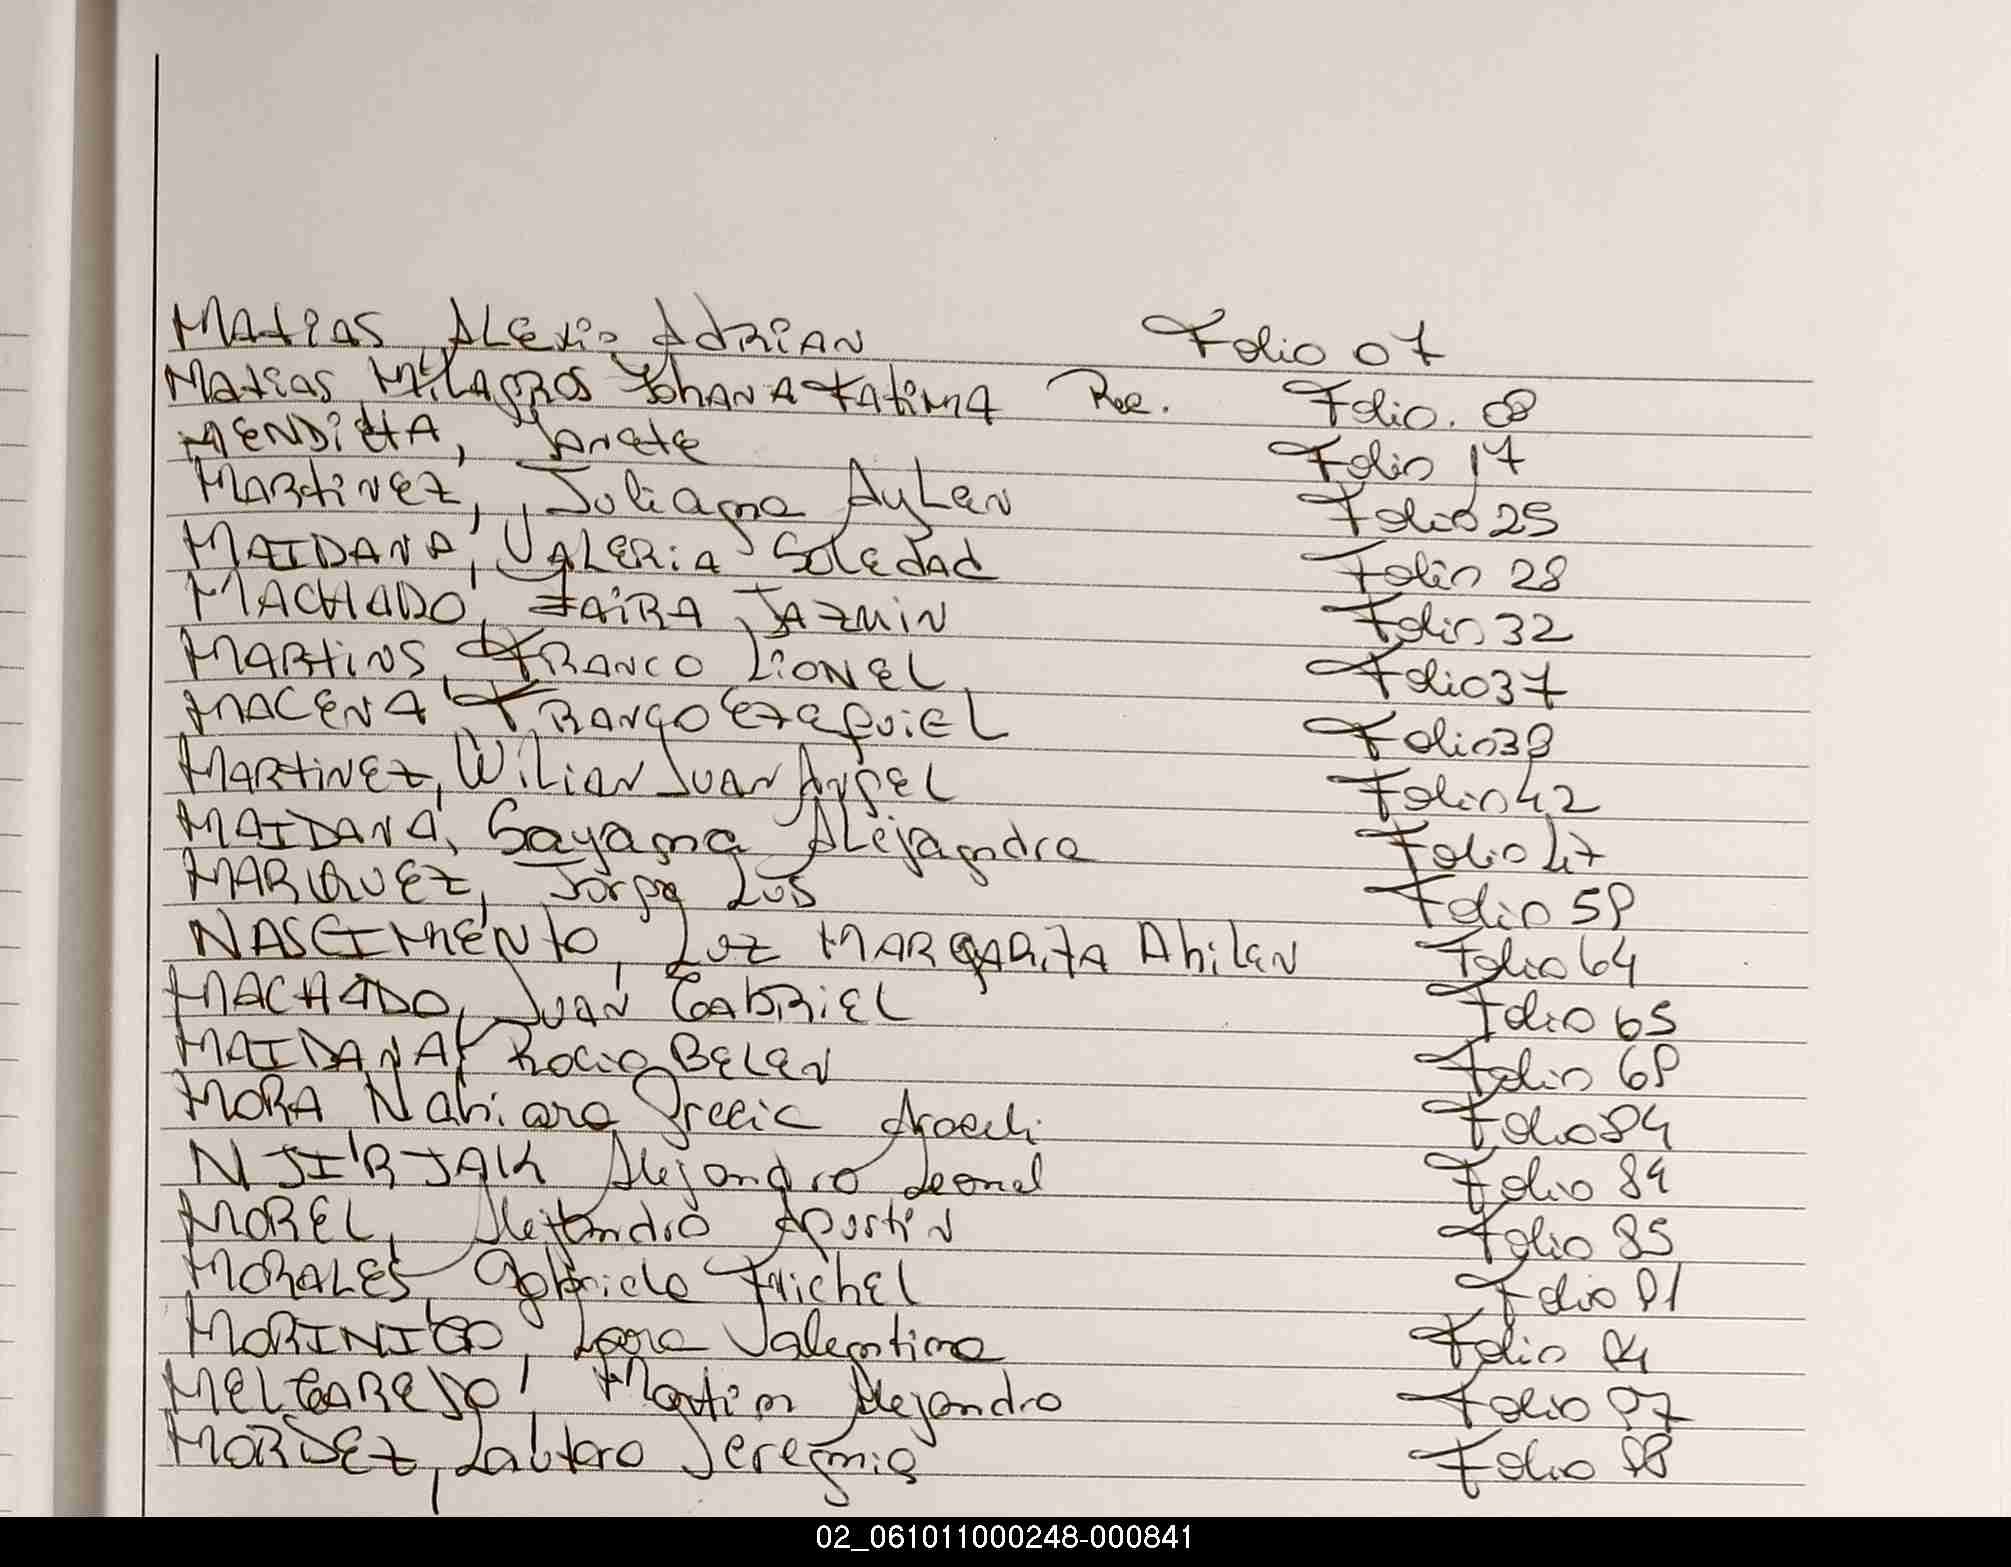 Matias, Alexis Adrian Folio 07
Matias Milagros Yohana Fatima Rec. Folio. 08
MENDIETA, Janete Folio 17
Martinez, Juliana Aylen Folio 25
MAIDANA, VALERIA Soledad Folio 28
MACHADO, ZAIRA JAZMIN Folio 32
MARTINS, FRANCO LIONEL Folio 37
MACENA FRANCO EZEQUIEL Folio 38
MARTINEZ, Wilian Juan Angel Folio 42
MAIDANA, Sayana Alejandra Folio 47
MARQUEZ, Jorge Luis Folio 59
NASCIMENTO, Luz MARGARITA Ahilen Folio 64
MACHADO, JUAN GABRIEL Folio 65
MAIDANA, Rocio BELEN Folio 69
MORA Nahiara Folio 84
Alejandro Leonel Folio 84
MOREL, Alejandro Agustin Folio 85
MORALES, Gabriela Michel Folio 91
MORINIGO, Lara Valentina Folio 94
MELGAREJO, Martin Alejandro Folio 97
Lautaro Jeremias Folio 98
02_061011000248-000841